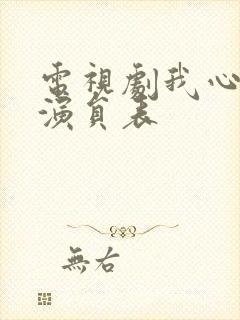 電視劇我心
演員表
無右